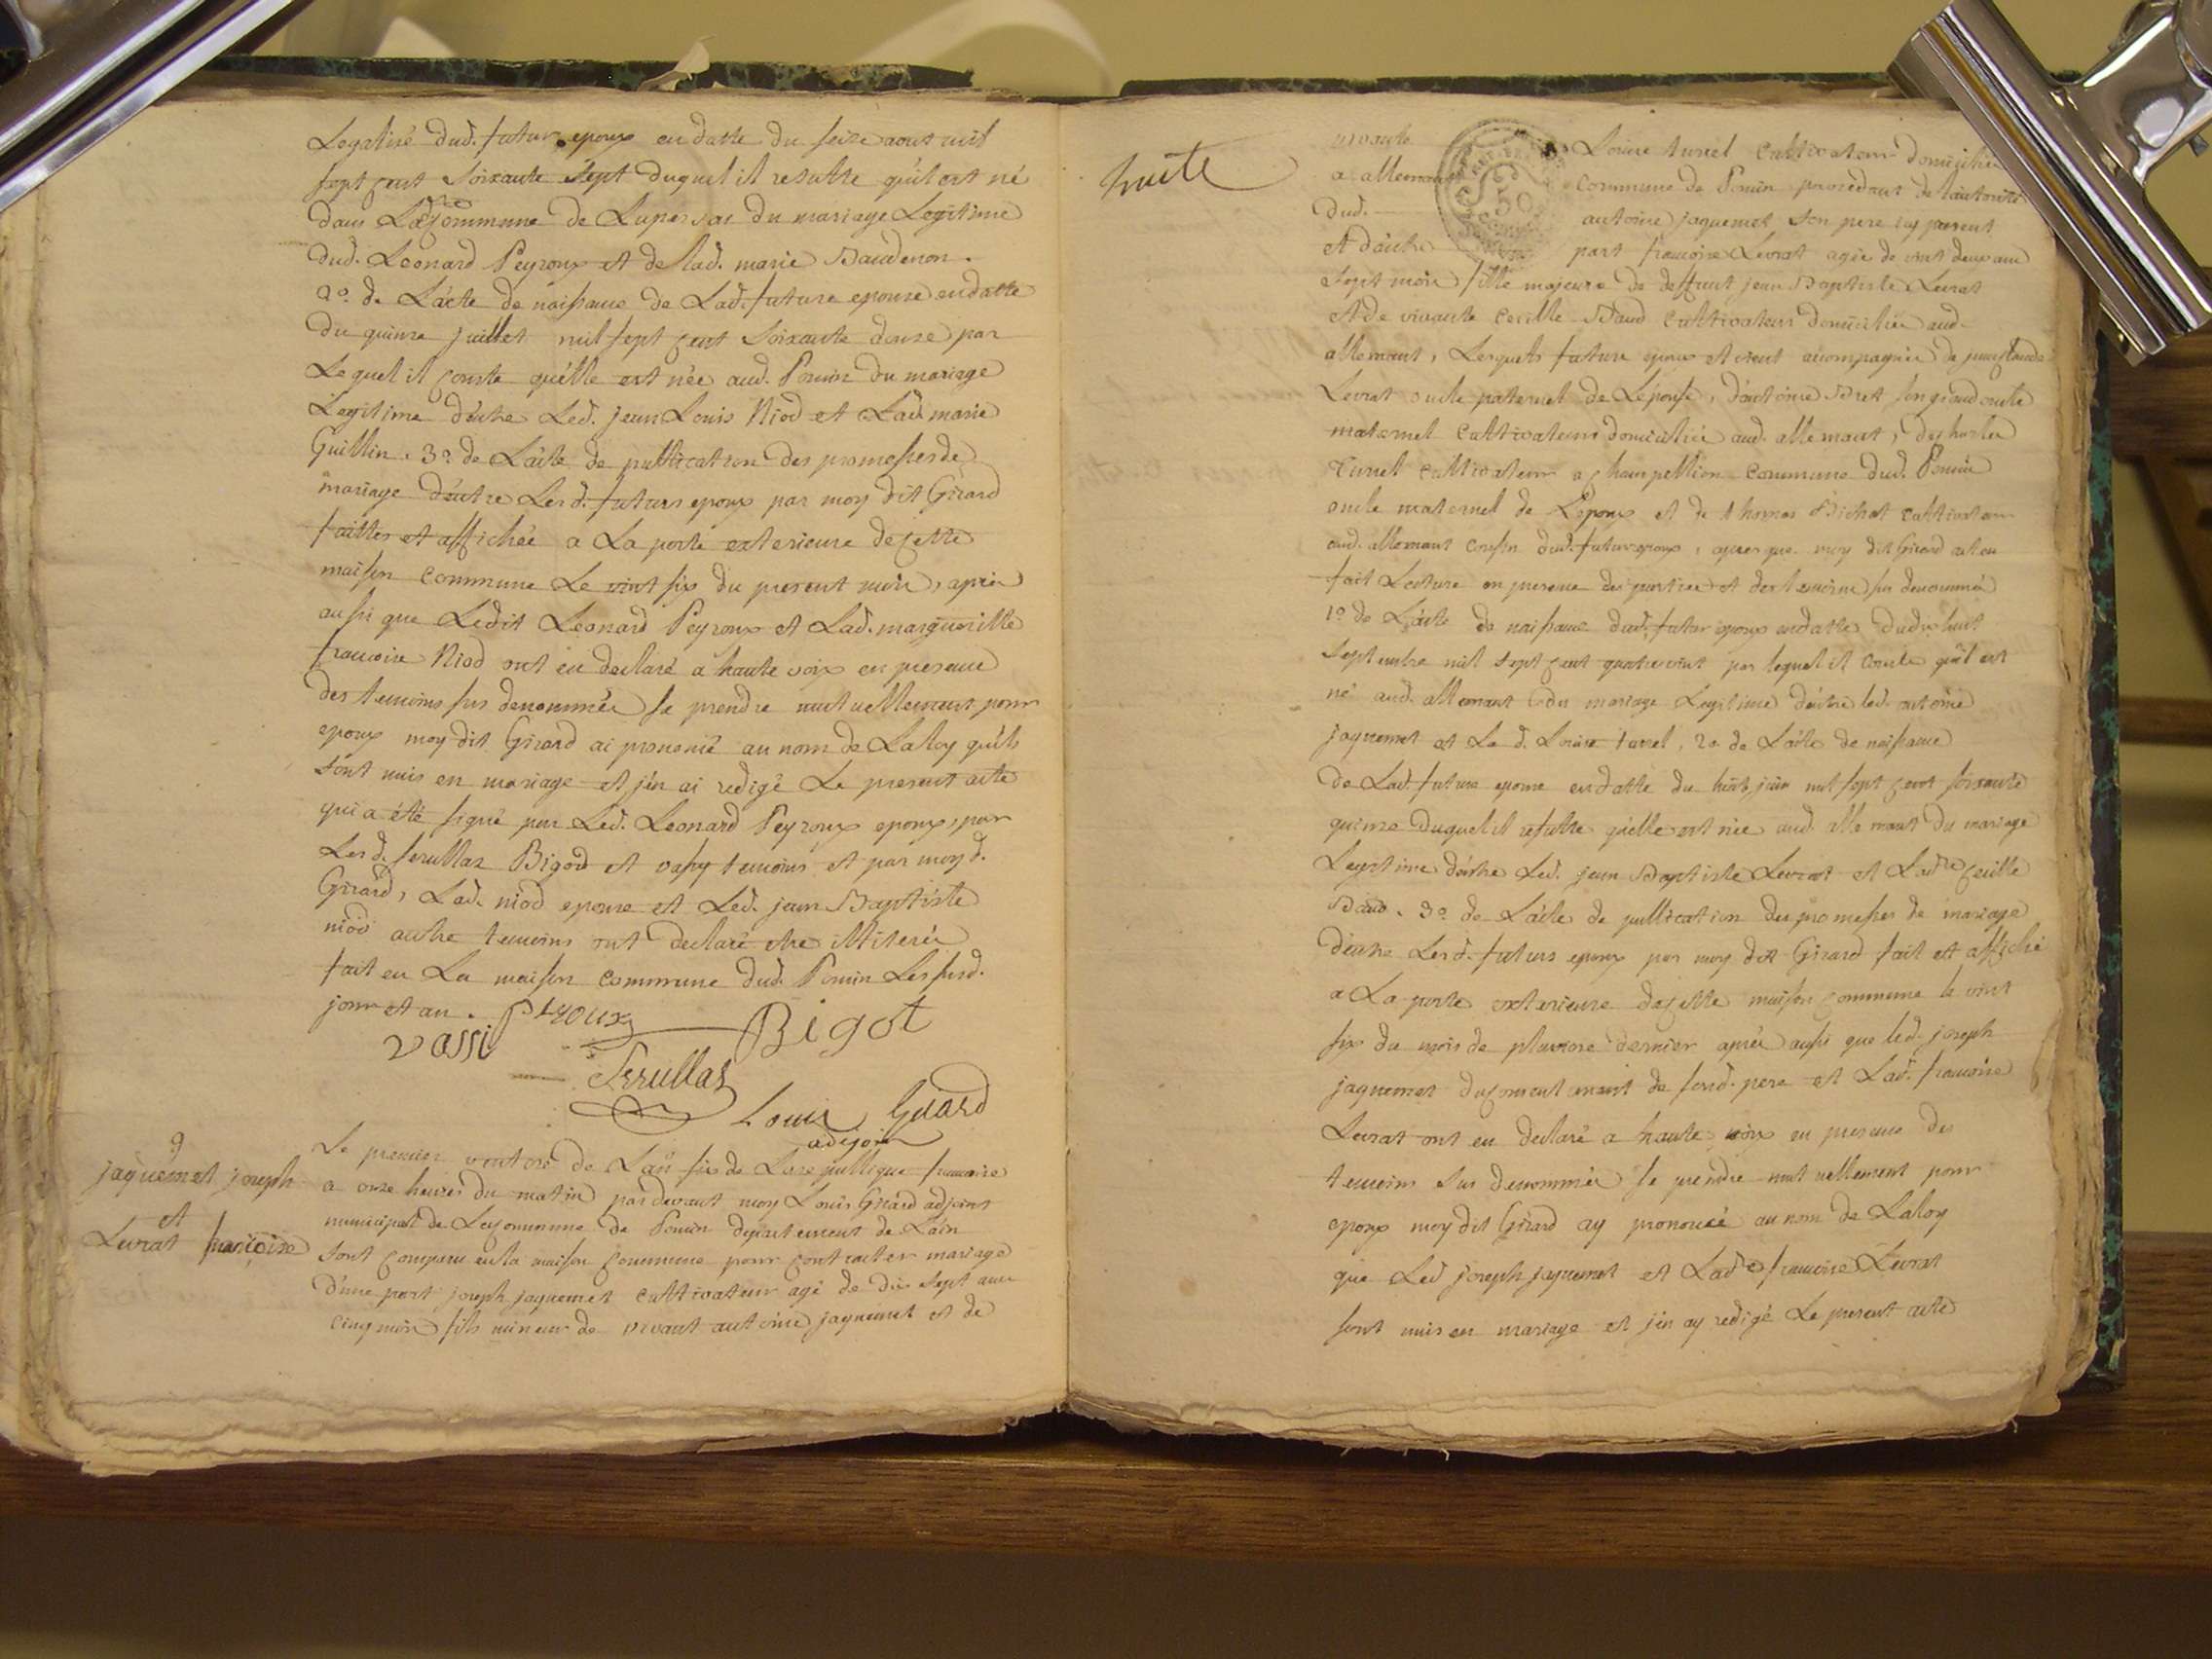 Legalisé dud. futur epoux en datte du seize aout mil
sept cent soixante sept duquel il resulte qu'il est né
dans Lad. commune de Lupersac du mariage Legitime
dud. Leonard Peyroux et de lad. marie Baudenon.
2º. de L'acte de naissance de Lad. future epouse en datte
du quinze juillet mil sept cent soixante douze par
Lequel il conste qu'elle est née aud. Poncin du mariage
Legitime d'entre Led. jean Louis Niod et Lad. marie
Guillin. 3º de L'acte de publication des promesses de
mariage d'entre Lesd. futurs epoux par moy dit Girard
faittes et affichée a La porte exterieure de cette
maison commune Le vint six du present mois, aprés
aussi que Ledit Leonard Peyroux et Lad. margueritte
francoise Niod ont eu declaré a haute voix en presence
des temoins sus denommés se prendre mutuellement pour
epoux moy dit Girard ai prononcé au nom de La loy qu'ils
sont unis en mariage et j'en ai redigé Le present acte
qui a été signé par Led. Leonard Peyroux epoux, par
Lesd. serullaz Bigod et vassy temoins et par moy d.
Girard, Lad. niod epouse et Led. jean Baptiste
niod autre temoins ont declaré etre illiterés
fait en La maison commune dud. Poncin Les susd.
jour et an. Peyroux
vassi Bigot
Serullaz
Louis Girard
adejoin
9
jaquemet joseph
et
Levrat francoise
Le premier ventose de L'an six de La republique francaise
a onze heures du matin pardevant moy Louis Girard adjoint
municipal de La commune de Poncin departement de L'ain
sont comparu en la maison commune pour contracter mariage
d'une part joseph jaquemet cultivateur agé de dix sept ans
cinq mois fils mineur de vivant antoine jaquemet et de
suite
vivante Louise turrel cultivateur domicilié
a allemant commune de Poncin procedant de l'autorité
dud. antoine jaquemet son pere icy present
et d'autre part francoise Levrat agée de vint deux ans
sept mois fille majeure de deffunt jean Baptiste Levrat
et de vivante cecille Baud cultivateurs domiciliés aud.
allemant, Lesquels futurs epoux etoient accompagnés de jean claude
Levrat oncle paternel de L'épouse, d'antoine Bret son grand oncle
maternel cultivateurs domiciliés aud. allemant, de charles
turrel cultivateur a champeillon commune dud. Poncin
oncle maternel de L'epoux et de thomas Bichat cultivateur
aud. allemant cousin dud. futur epoux, apres que moy dit Girard ai eu
fait Lecture en presence des parties et des temoins sus denommés
1º de L'acte de naissance dud. futur epoux en datte du dix huit
septembre mil sept cent quatre vint par lequel il conste qu'il est
né aud. allemant du mariage Legitime d'entre led. antoine
jaquemet et La d. Louise turrel, 2º. de L'acte de naissance
de Lad. future epouse en datte du huit juin mil sept cent soixante
quinze duquel il resulte qu'elle est née aud. allemant du mariage
Legitime d'entre Led. jean Baptiste Levrat et Lad. cecille
Baud. 3º de L'acte de publication des promesses de mariage
d'entre Lesd. futurs epoux par moy dit Girard fait et affiché
a La porte exterieure de cette maison commune le vint
six du mois de pluviose dernier aprés aussi que led. joseph
jaquemet du consentement de sond. pere et Lad. francoise
Levrat ont eu declaré a haute voix en presence des
temoins sus denommés se prendre mutuellement pour
epoux moy dit Girard ay prononcé au nom de La loy
que Led joseph jaquemet et Lad. francoise Levrat
sont unis en mariage et j'en ay redigé Le present acte